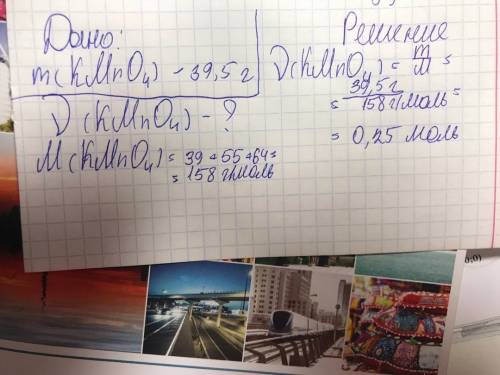 Дано:
m(KMnO₄) - 39,5 г
ν(KMnO₄) - ?
M(KMnO₄) = 39 + 55 + 64 =
= 158 г/моль
Решение
ν(KMnO₄) = m/M =
= 39,5 г / 158 г/моль =
= 0,25 моль